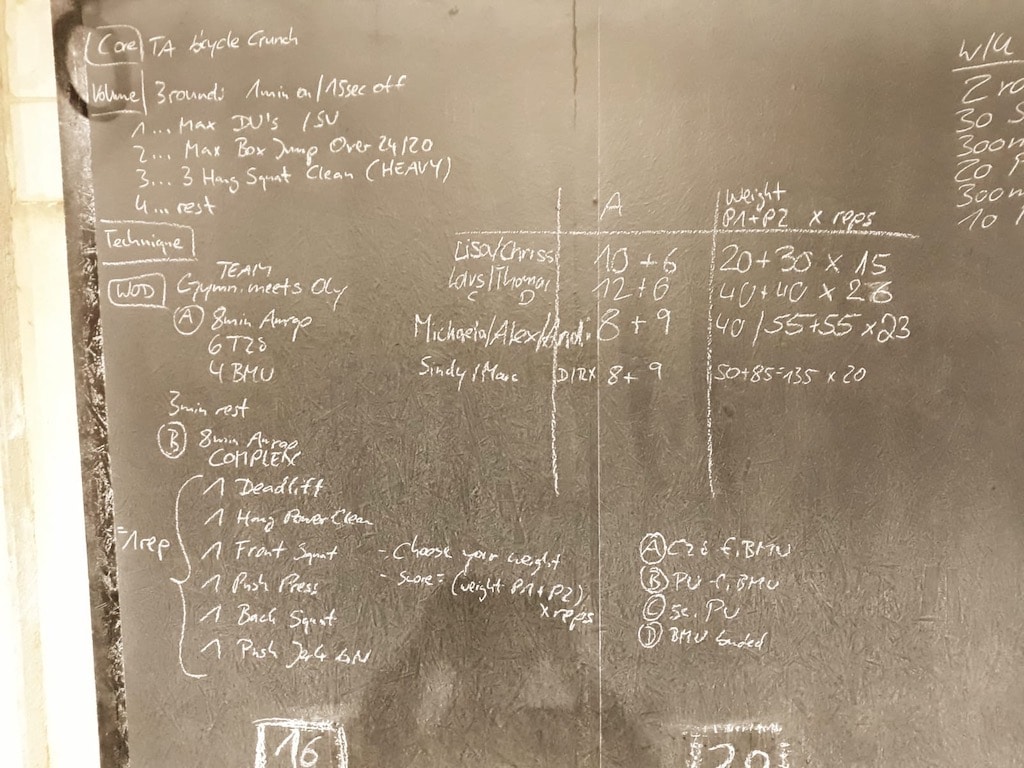 Core TA bicycle Crunch
Volume 3 rounds 1min on/15sec off
1... Max DU's /SU
2... Max Box Jump Over 24/20
3... 3 Hang Squat Clean (HEAVY)
4... rest
Technique
WOD TEAM
Gymn. meets Oly
A 8min Amrap
6 T2B
4 BMU
3min rest
B 8min Amrap
COMPLEX
1 Deadlift
1 Hang Power Clean
1 Front Squat
1 Push Press
1 Back Squat
1 Push Jerk
=1rep
- Choose your weight
- Score = (weight P1+P2)
x reps
A Weight
P1+P2 x reps
Lisa/Chrissi 10+6 20+30 x 15
/Thomas 12+6 40+40 x
C D
Michaela/Alex/Andi 8+9 40/55+55 x 23
Sindy/ DIRX 8+9 50+85=135 x 20
A BMU
B PU BMU
C PU
D BMU banded
W/U
2
30
300m
20
300m
10
16
20